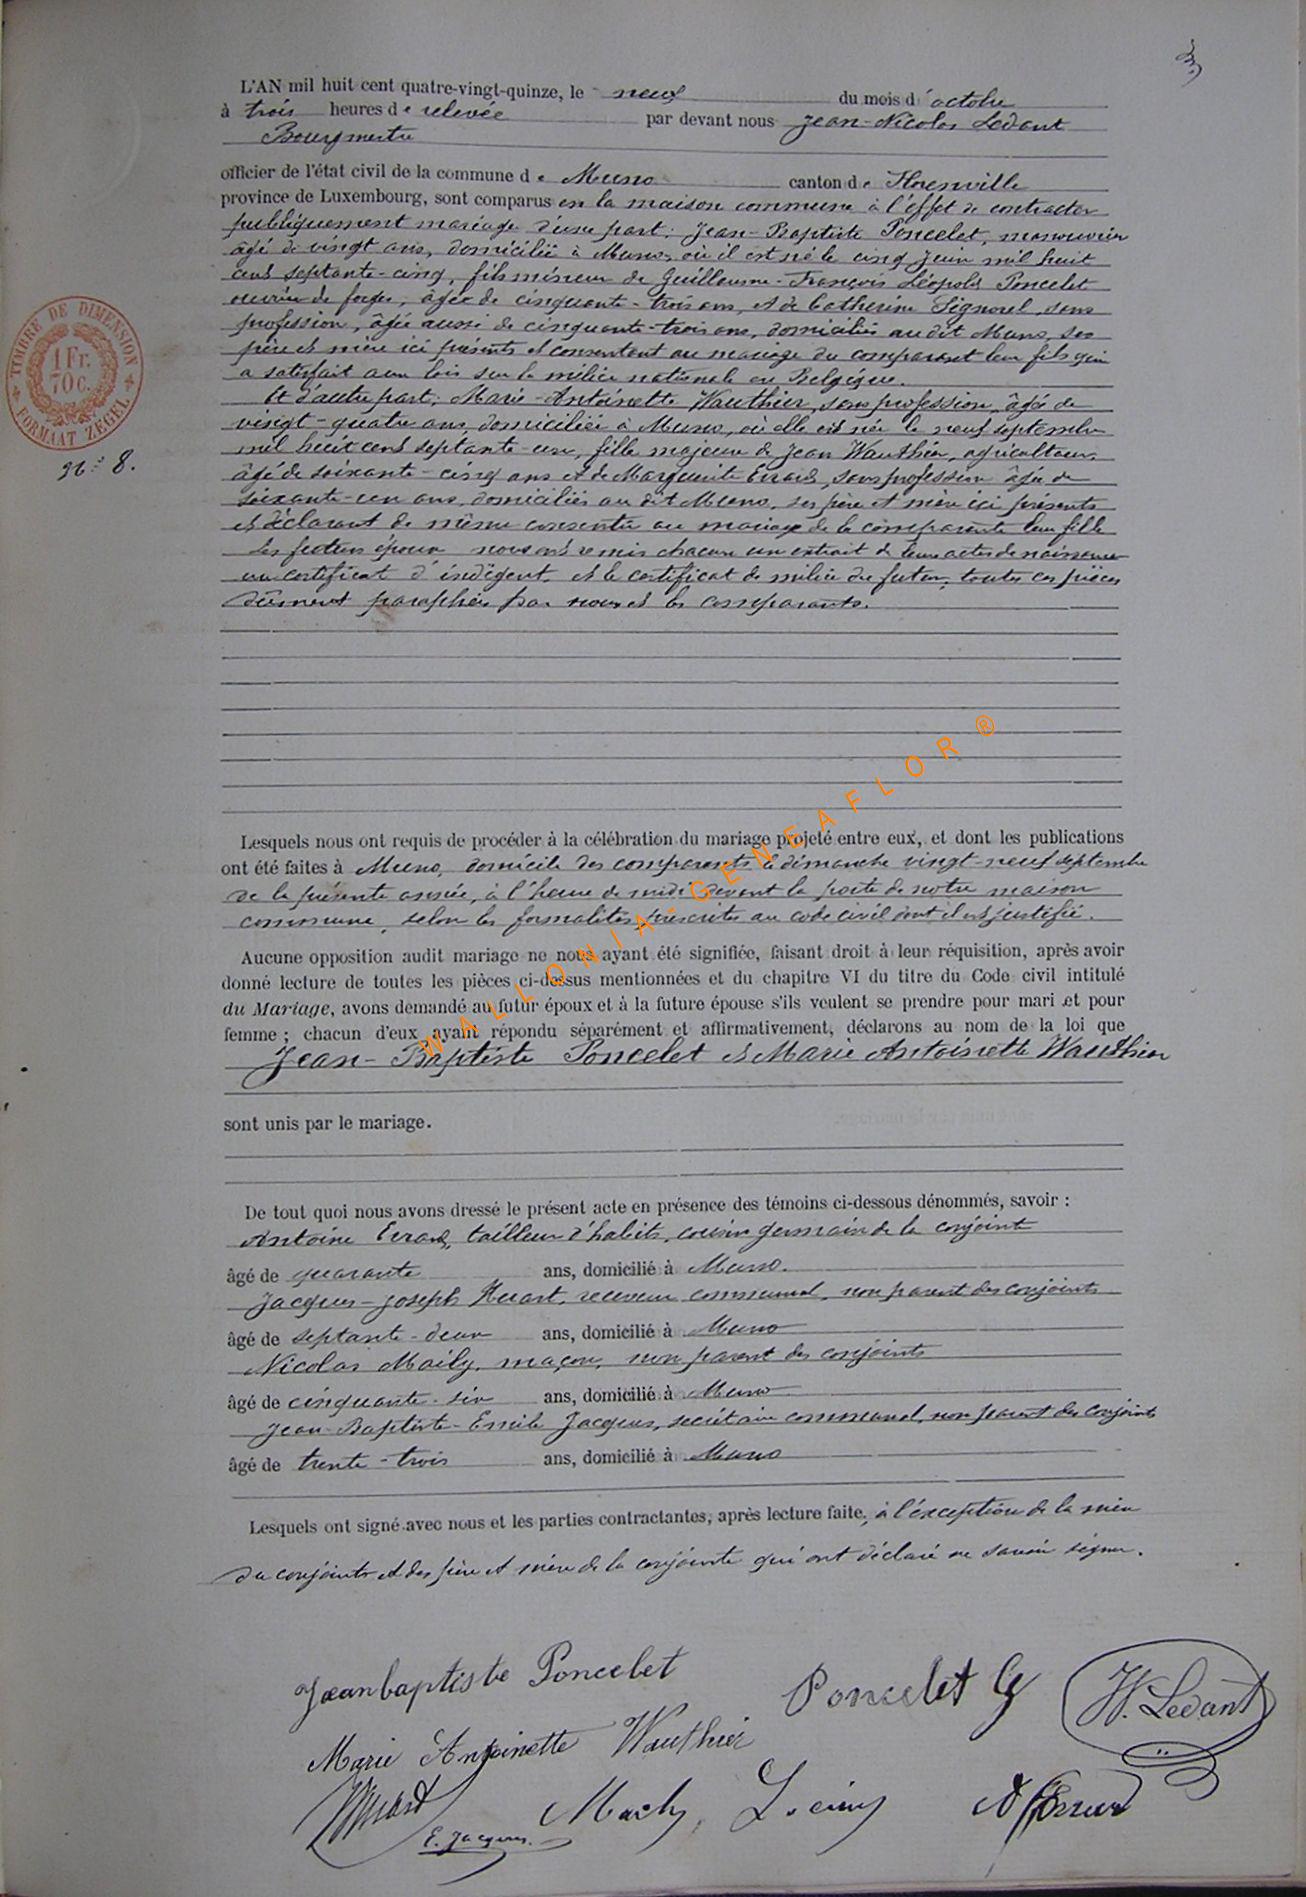 3
L'AN mil huit cent quatre-vingt-quinze, le neuf du mois d'octobre
à trois heures de relevée par devant nous Jean-Nicolas Ledant
Bourgmestre
officier de l'état civil de la commune de Muno canton de Florenville
province de Luxembourg, sont comparus en la maison commune à l'effet de contracter
publiquement mariage d'une part: Jean-Baptiste Poncelet, manouvrier
âgé de vingt ans, domicilié à Muno, où il est né le cinq juin mil huit
cent septante-cinq, fils mineur de Guillaume-François Léopold Poncelet
ouvrier de forges, âgé de cinquante-trois ans, et de Catherine Signorel, sans
profession, âgée aussi de cinquante-trois ans, domiciliés au dit Muno, ses
père et mère ici présents et consentant au mariage du comparant leur fils qui
a satisfait aux lois sur la milice nationale en Belgique.
Et d'autre part; Marie-Antoinette Wauthier, sans profession, âgée de
vingt-quatre ans, domiciliée à Muno, où elle est née le neuf septembre
mil huit cent septante-un, fille majeure de Jean Wauthier, agriculteur,
âgé de soixante-cinq ans et de Marguerite Evrard, sans profession âgée de
soixante-un ans, domiciliés au dit Muno, ses père et mère ici présents
et déclarant de même consentir au mariage de la comparante leur fille
Les futurs époux nous ont remis chacun un extrait de leurs actes de naissance
un certificat d'indigent, et le certificat de milice du futur, toutes ces pièces
dûment paraphées par nous et les comparants.
TIMBRE DE DIMENSION
1 Fr.
70 c.
FORMAAT ZEGEL
8.
Lesquels nous ont requis de procéder à la célébration du mariage projeté entre eux, et dont les publications
ont été faites à Muno, domicile des comparants le dimanche vingt-neuf septembre
de la présente année, à l'heure de midi devant la porte de notre maison
commune, selon les formalités prescrites au code civil dont il est justifié.
Aucune opposition audit mariage ne nous ayant été signifiée, faisant droit à leur réquisition, après avoir
donné lecture de toutes les pièces ci-dessus mentionnées et du chapitre VI du titre du Code civil intitulé
du Mariage, avons demandé au futur époux et à la future épouse s'ils veulent se prendre pour mari et pour
femme ; chacun d'eux ayant répondu séparément et affirmativement, déclarons au nom de la loi que
Jean-Baptiste Poncelet et Marie Antoinette Wauthier
sont unis par le mariage.
WALLONIA-GENEAFLOR®
De tout quoi nous avons dressé le présent acte en présence des témoins ci-dessous dénommés, savoir :
Antoine Evrard, tailleur d'habits, cousin germain de la conjoint
âgé de quarante ans, domicilié à Muno.
Jacques-Joseph Huart, receveur communal, non parent des conjoints
âgé de septante-deux ans, domicilié à Muno
Nicolas Maily, maçon, non parent des conjoints
âgé de cinquante-six ans, domicilié à Muno
Jean-Baptiste-Emile Jacques, secrétaire communal, non parent des conjoints
âgé de trente-trois ans, domicilié à Muno
Lesquels ont signé avec nous et les parties contractantes, après lecture faite, à l'exception de la mère
du conjoints et des père et mère de la conjointe qui ont déclaré ne savoir signer.
Jeanbaptiste Poncelet
Poncelet G
W. Ledant
Marie Antoinette Wauthier
Huart
E. Jacques